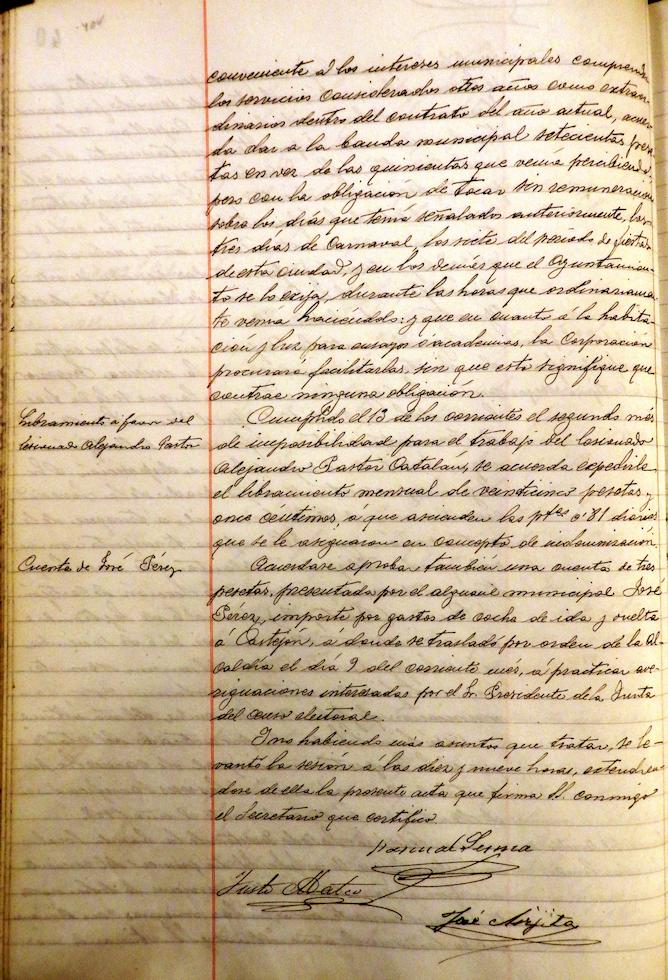 conveniente á los intereses municipales comprender
los servicios considerados otros años como extraor-
dinarios dentro del contrato del año actual, acuer-
da dar a la banda municipal setecientas pese-
tas en vez de las quinientas que venía percibiendo,
pero con la obligación de tocar sin remuneración
sobre los días que tenía señalados anteriormente, los
tres días de Carnaval, los siete del período de fiestas
de esta ciudad, y en los demás que el Ayuntamien-
to se lo exija, durante las horas que ordinariamen-
te venía haciéndolo: y que en cuanto á la habita-
ción y luz para ensayos ó academias, la Corporación
procurará facilitarlas, sin que esto signifique que
contrae ninguna obligación.
Libramiento á favor del
lesionado Alejandro Pastor
Cumplido el 13 de los corrientes el segundo mes
de imposibilidad para el trabajo del lesionado
Alejandro Pastor Catalan, se acuerda expedirle
el libramiento mensual de veinticinco pesetas y
once céntimos, á que ascienden las ptas 0'81 diarias
que se le asignaron en concepto de indemnización
Cuenta de José Pérez
Acuérdase aprobar también una cuenta de tres
pesetas, presentada por el alguacil municipal José
Pérez, importe por gastos de coche de ida y vuelta
á Castejón, á donde se trasladó por orden de la Al-
caldía el día 9 del corriente mes, á practicar ave-
riguaciones interesadas por el Sr. Presidente de la Junta
del censo electoral.
Y no habiendo más asuntos que tratar, se le-
vantó la sesión á las diez y nueve horas, extendién-
dose de ella la presente acta que firma S.S. conmigo
el Secretario que certifico
Pascual
Justo Mateo
José